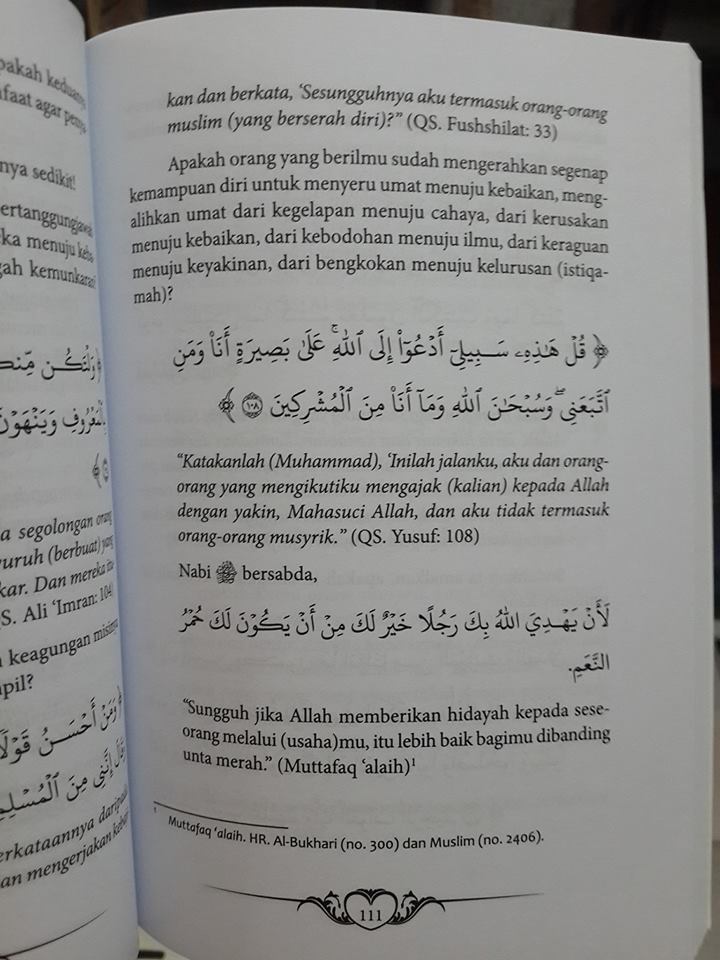 pakah keduanya
faat agar
nya sedikit!
ertanggungjawab
eka menuju
gah kemunkaran
﴿ وَلْتَكُن مِّنكُ
بِٱلْمَعْرُوفِ وَيَنْهَوْنَ
a segolongan orang
uruh (berbuat) yang
kar. Dan mereka itu
S. Ali ‘Imran: 104)
keagungan misinya
pil?
﴿ وَمَنْ أَحْسَنُ قَوْلًا
وَقَالَ إِنَّنِى مِنَ ٱلْمُسْلِمِ
erkataannya daripada
an mengerjakan
kan dan berkata, ‘Sesungguhnya aku termasuk orang-orang
muslim (yang berserah diri)?” (QS. Fushshilat: 33)
Apakah orang yang berilmu sudah mengerahkan segenap
kemampuan diri untuk menyeru umat menuju kebaikan, meng-
alihkan umat dari kegelapan menuju cahaya, dari kerusakan
menuju kebaikan, dari kebodohan menuju ilmu, dari keraguan
menuju keyakinan, dari bengkokan menuju kelurusan (istiqa-
mah)?
﴿ قُلْ هَـٰذِهِۦ سَبِيلِىٓ أَدْعُوٓا۟ إِلَى ٱللَّهِ ۚ عَلَىٰ بَصِيرَةٍ أَنَا۠ وَمَنِ
ٱتَّبَعَنِى ۖ وَسُبْحَـٰنَ ٱللَّهِ وَمَآ أَنَا۠ مِنَ ٱلْمُشْرِكِينَ ١٠٨ ﴾
“Katakanlah (Muhammad), ‘Inilah jalanku, aku dan orang-
orang yang mengikutiku mengajak (kalian) kepada Allah
dengan yakin, Mahasuci Allah, dan aku tidak termasuk
orang-orang musyrik.” (QS. Yusuf: 108)
Nabi ﷺ bersabda,
لَأَنْ يَهْدِيَ اللهُ بِكَ رَجُلًا خَيْرٌ لَكَ مِنْ أَنْ يَكُوْنَ لَكَ حُمْرُ
النَّعَمِ.
“Sungguh jika Allah memberikan hidayah kepada sese-
orang melalui (usaha)mu, itu lebih baik bagimu dibanding
unta merah.” (Muttafaq ‘alaih)¹
¹ Muttafaq ‘alaih. HR. Al-Bukhari (no. 300) dan Muslim (no. 2406).
111